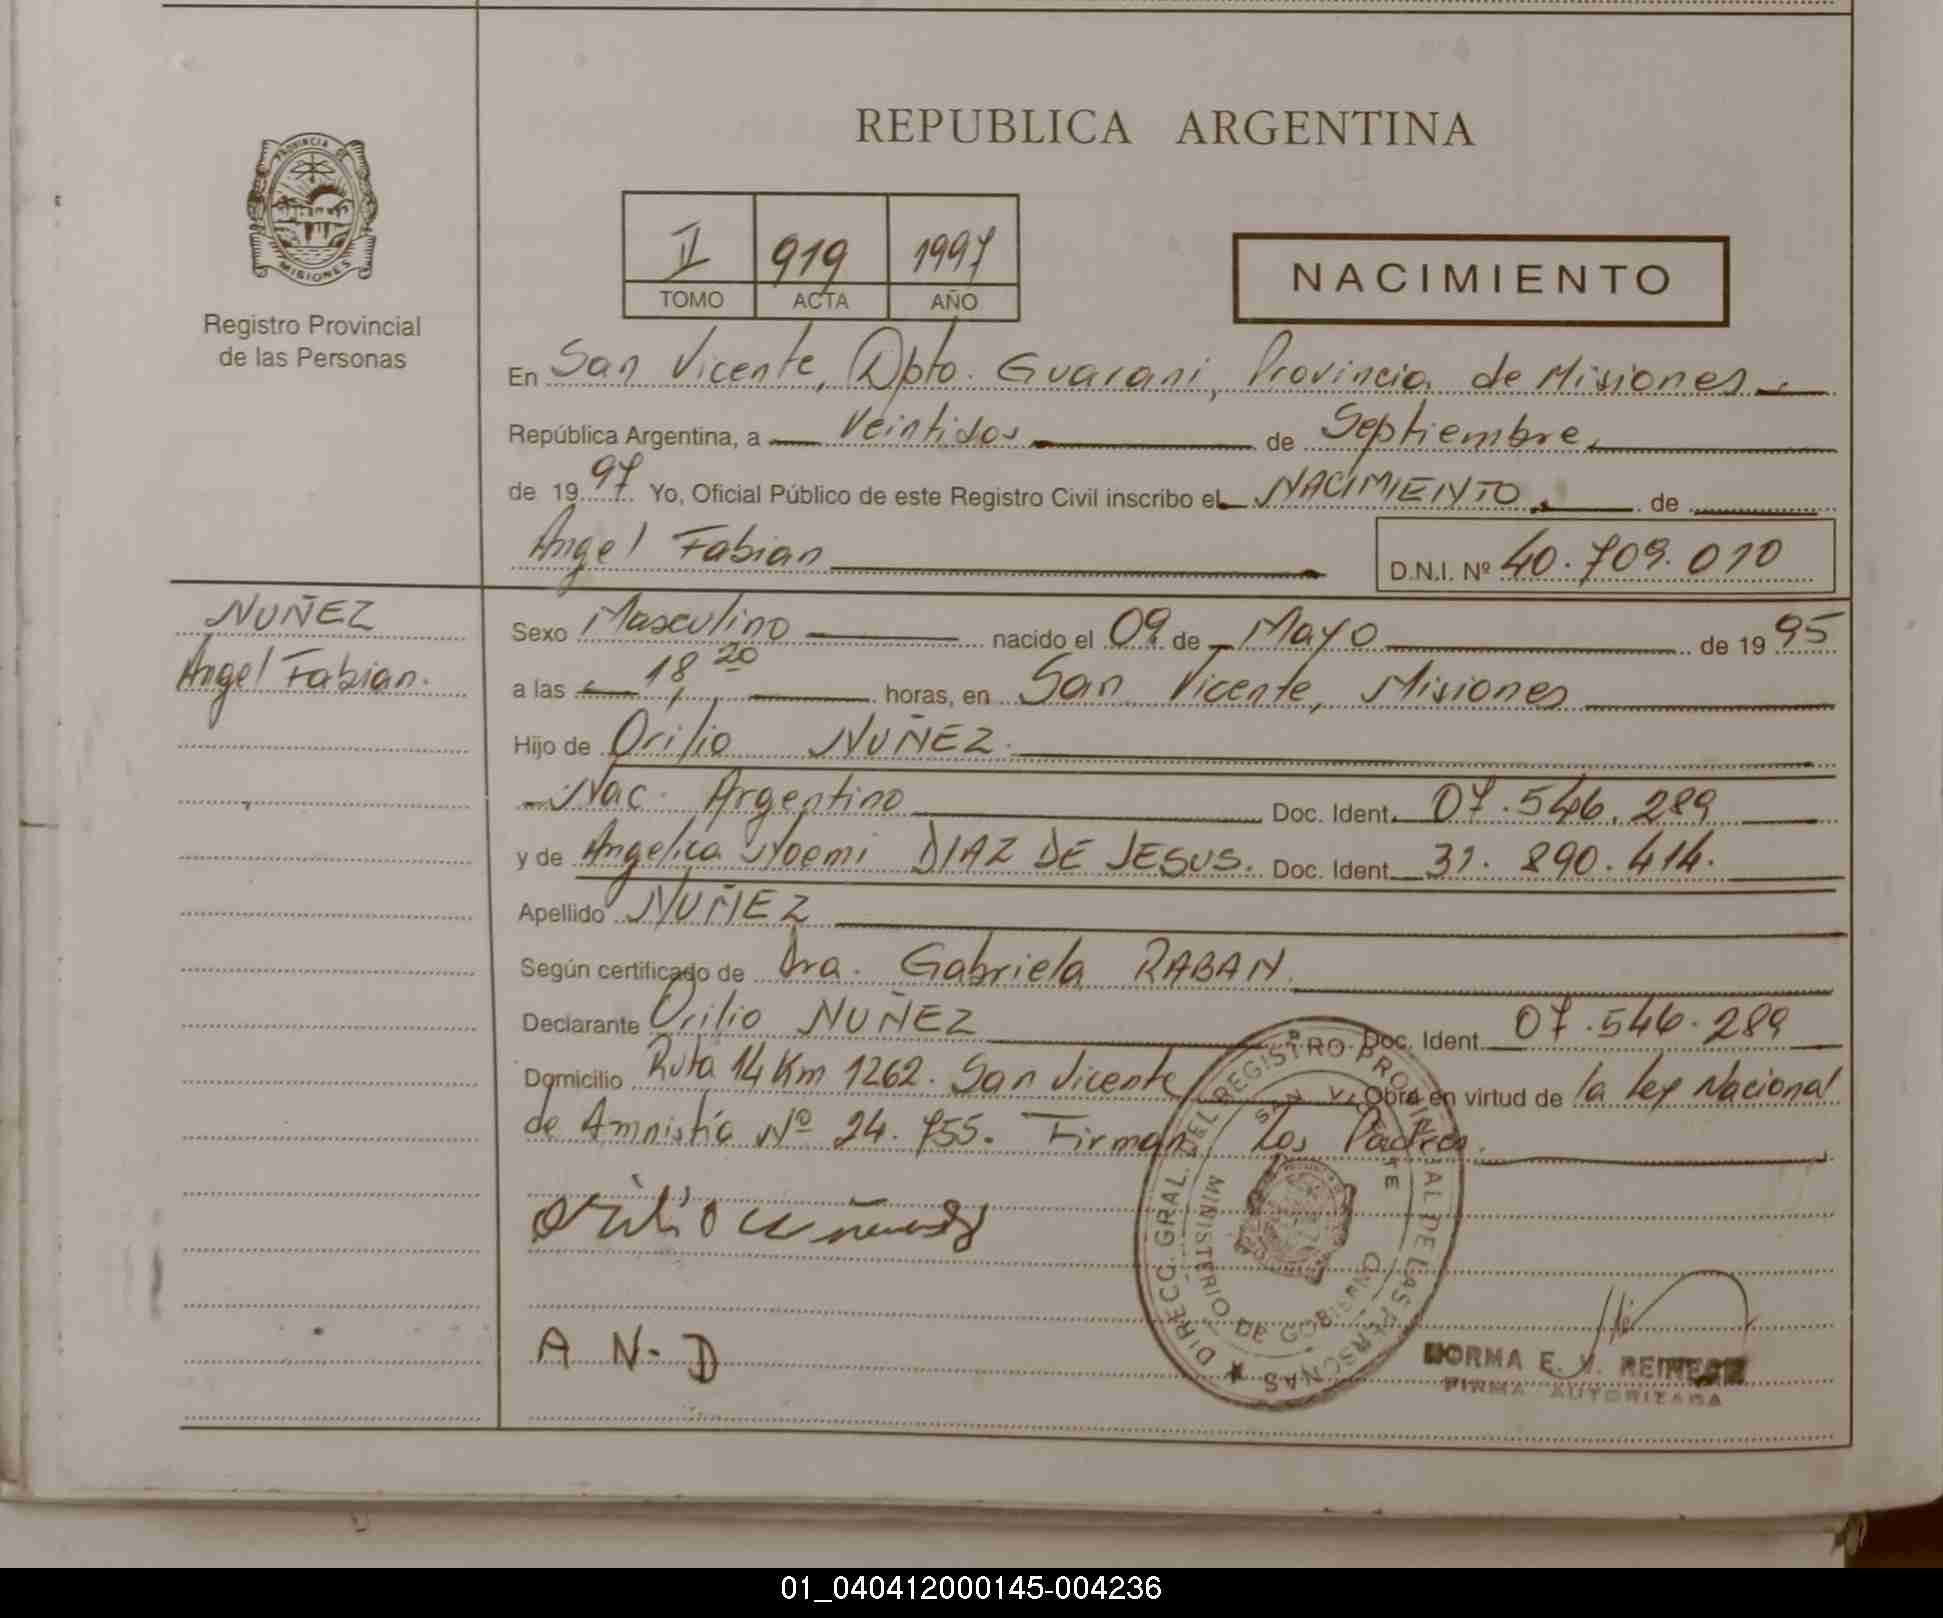 REPUBLICA ARGENTINA
PROVINCIA DE
MISIONES
Registro Provincial
de las Personas
II 919 1997
TOMO ACTA AÑO
NACIMIENTO
En San Vicente, Dpto. Guarani, Provincia de Misiones
República Argentina, a Veintidos de Septiembre
de 1997 Yo, Oficial Público de este Registro Civil inscribo el NACIMIENTO de
Angel Fabian
D.N.I. Nº 40.709.010
NUÑEZ
Angel Fabian.
Sexo Masculino nacido el 09 de Mayo de 1995
a las 18 20 horas, en San Vicente, Misiones
Hijo de Orilio NUÑEZ.
Nac. Argentino Doc. Ident. 07.546.289
y de Angelica Noemi DIAZ DE JESUS. Doc. Ident. 31.890.414.
Apellido NUÑEZ
Según certificado de Dra. Gabriela RABAN
Declarante Orilio NUÑEZ Doc. Ident. 07.546.289
Domicilio Ruta 14 Km 1262. San Vicente Obra en virtud de la Ley Nacional
de Amnistía Nº 24.755. Firman Los Padres.
A N. D
DIRECC. GRAL. DEL REGISTRO PROVINCIAL DE LAS PERSONAS
SAN VICENTE
MINISTERIO DE GOBIERNO
NORMA E. V.
FIRMA AUTORIZADA
01_040412000145-004236